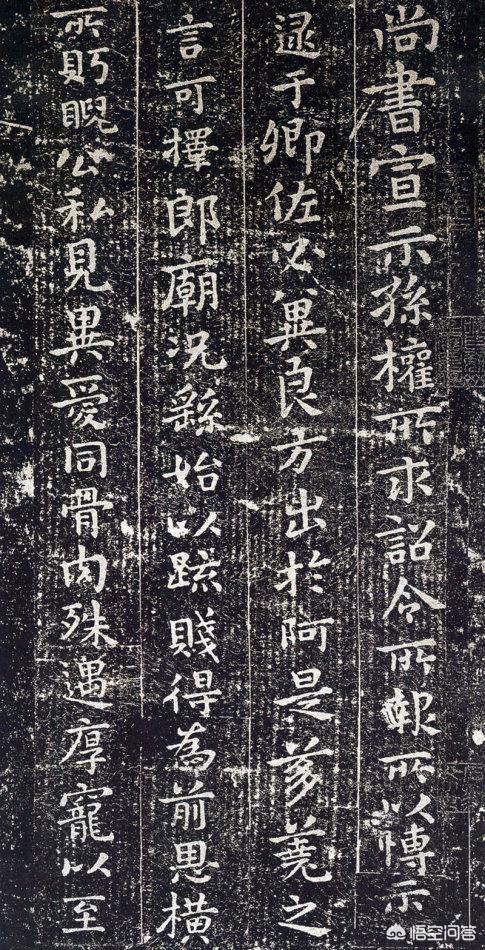 尚書宣示孫權所求詔令所報所以博示
逮于卿佐必冀良方出於阿是芻蕘之
言可擇郎廟況繇始以疏賤得為前恩橫
所眄睨公私見異愛同骨肉殊遇厚寵以至
悟空问答